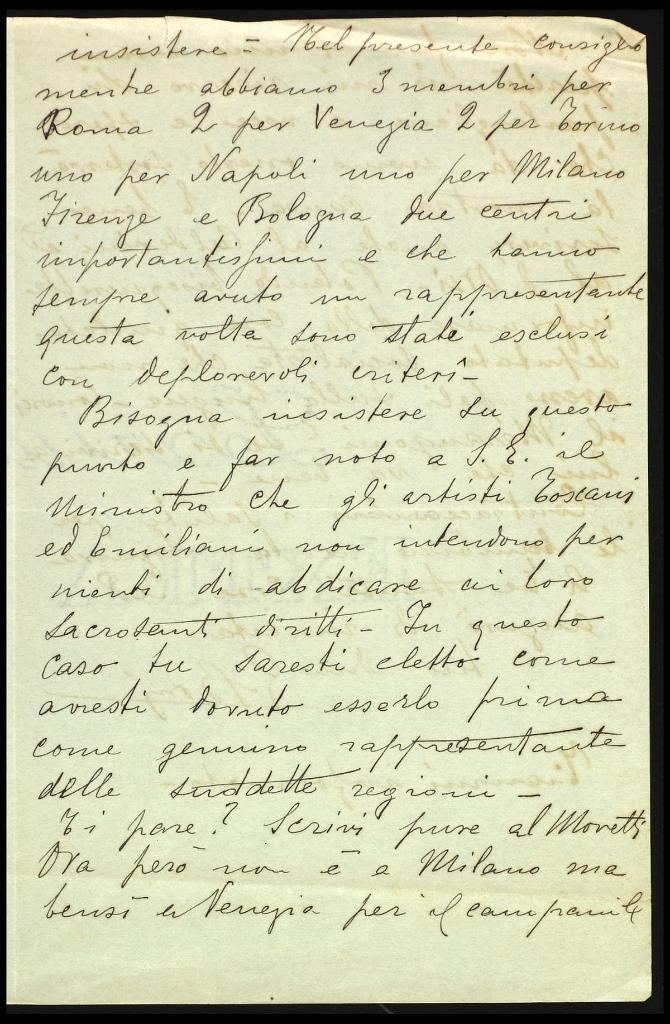 insistere = Nel presente consiglio
mentre abbiamo 3 membri per
Roma 2 per Venezia 2 per Torino
uno per Napoli uno per Milano
Firenze e Bologna due centri
importantissimi e che hanno
sempre avuto un rappresentante
questa volta sono stati esclusi
con deplorevoli criterî -
Bisogna insistere su questo
punto e far noto a S. E. il
Ministro che gli artisti Toscani
ed Emiliani non intendono per
nienti di abdicare ai loro
sacrosanti diritti - In questo
caso tu saresti eletto come
avresti dovuto esserlo prima
come genuino rappresentante
delle suddette regioni -
Ti pare? Scrivi pure al Moretti
Ora però non è a Milano ma
bensì a Venezia per il campanile